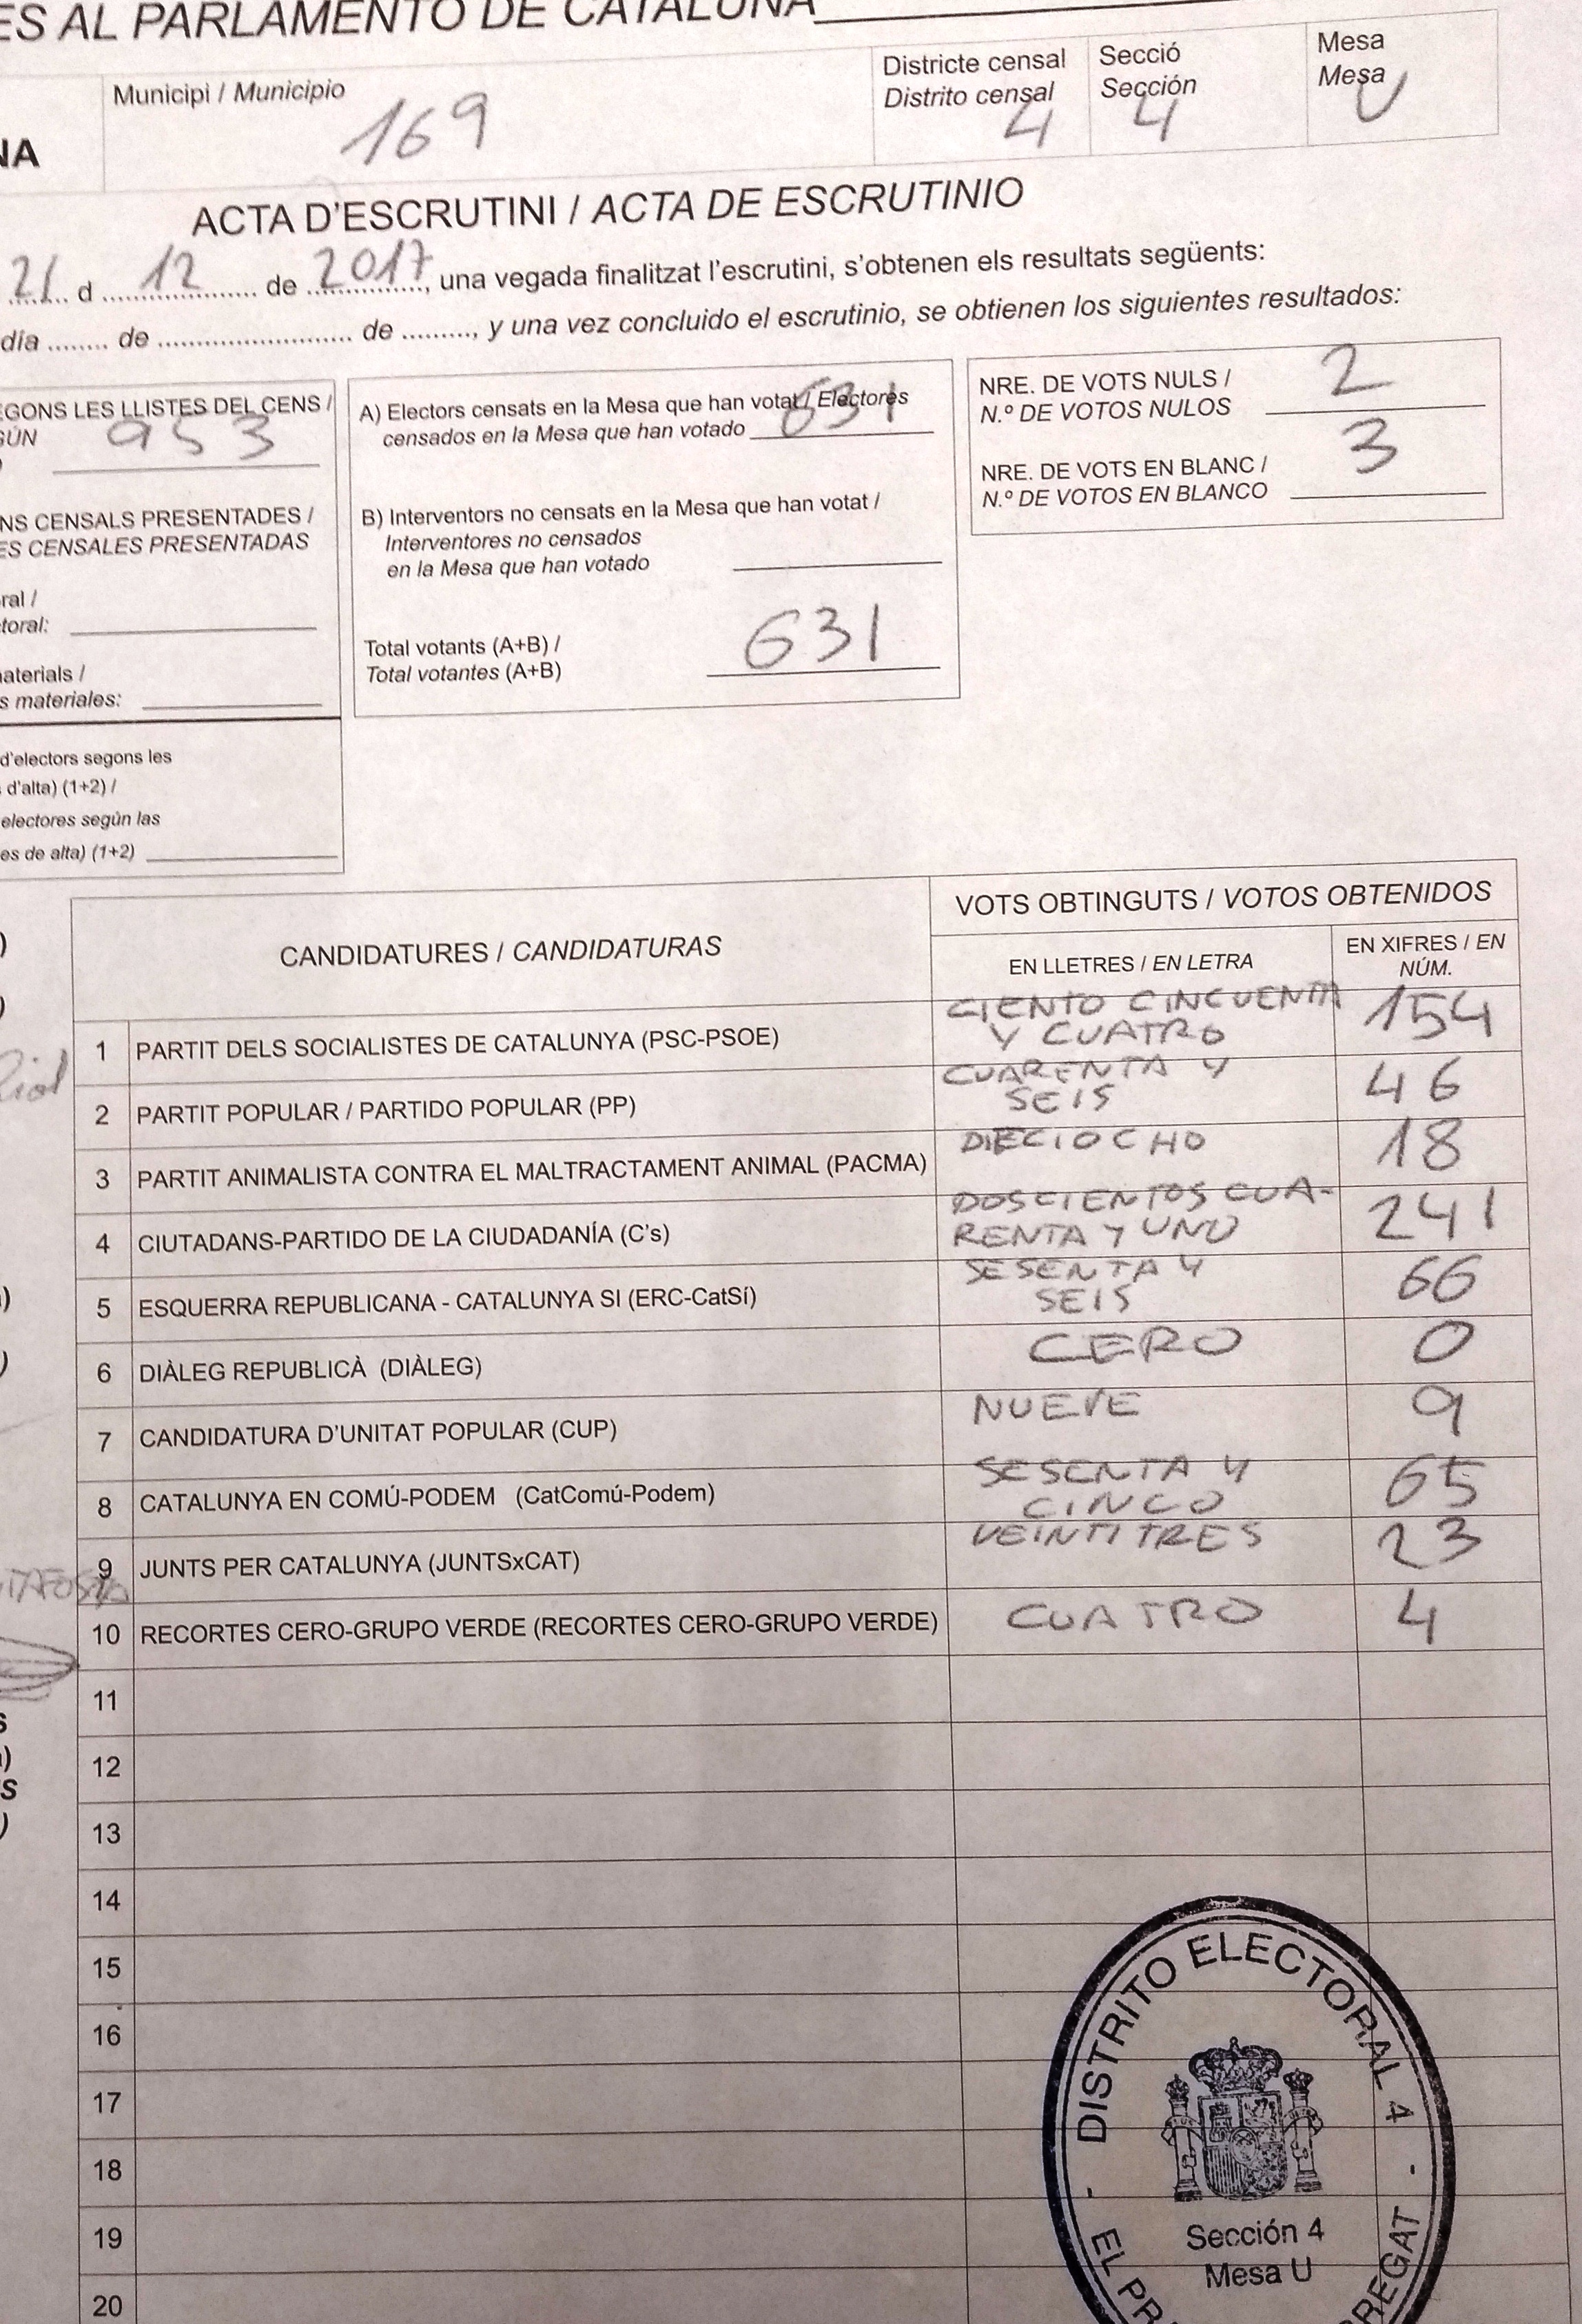 ES AL PARLAMENTO DE CATALUÑA
Municipi / Municipio
169
Districte censal
Distrito censal
4
Secció
Sección
4
Mesa
Mesa
U
NA
ACTA D'ESCRUTINI / ACTA DE ESCRUTINIO
21 d 12 de 2017, una vegada finalitzat l'escrutini, s'obtenen els resultats següents:
día ........ de .......................... de ........., y una vez concluido el escrutinio, se obtienen los siguientes resultados:
EGONS LES LLISTES DEL CENS /
GÚN
953
NS CENSALS PRESENTADES /
ES CENSALES PRESENTADAS
ral /
toral:
naterials /
s materiales:
d'electors segons les
s d'alta) (1+2) /
electores según las
es de alta) (1+2)
A) Electors censats en la Mesa que han votat / Electores
censados en la Mesa que han votado 631
B) Interventors no censats en la Mesa que han votat /
Interventores no censados
en la Mesa que han votado
Total votants (A+B) /
Total votantes (A+B)
631
NRE. DE VOTS NULS /
N.º DE VOTOS NULOS
2
NRE. DE VOTS EN BLANC /
N.º DE VOTOS EN BLANCO
3
CANDIDATURES / CANDIDATURAS
VOTS OBTINGUTS / VOTOS OBTENIDOS
EN LLETRES / EN LETRA
EN XIFRES / EN
NÚM.
1 PARTIT DELS SOCIALISTES DE CATALUNYA (PSC-PSOE)
CIENTO CINCUENTA
Y CUATRO
154
2 PARTIT POPULAR / PARTIDO POPULAR (PP)
CUARENTA Y
SEIS
46
3 PARTIT ANIMALISTA CONTRA EL MALTRACTAMENT ANIMAL (PACMA)
DIECIOCHO
18
4 CIUTADANS-PARTIDO DE LA CIUDADANÍA (C's)
DOSCIENTOS CUA-
RENTA Y UNO
241
5 ESQUERRA REPUBLICANA - CATALUNYA SI (ERC-CatSí)
SESENTA Y
SEIS
66
6 DIÀLEG REPUBLICÀ (DIÀLEG)
CERO
0
7 CANDIDATURA D'UNITAT POPULAR (CUP)
NUEVE
9
8 CATALUNYA EN COMÚ-PODEM (CatComú-Podem)
SESENTA Y
CINCO
65
9 JUNTS PER CATALUNYA (JUNTSxCAT)
VEINTITRES
23
10 RECORTES CERO-GRUPO VERDE (RECORTES CERO-GRUPO VERDE)
CUATRO
4
11
12
13
14
15
16
17
18
19
20
DISTRITO ELECTORAL 4
Sección 4
Mesa U
- EL PR
REGAT -